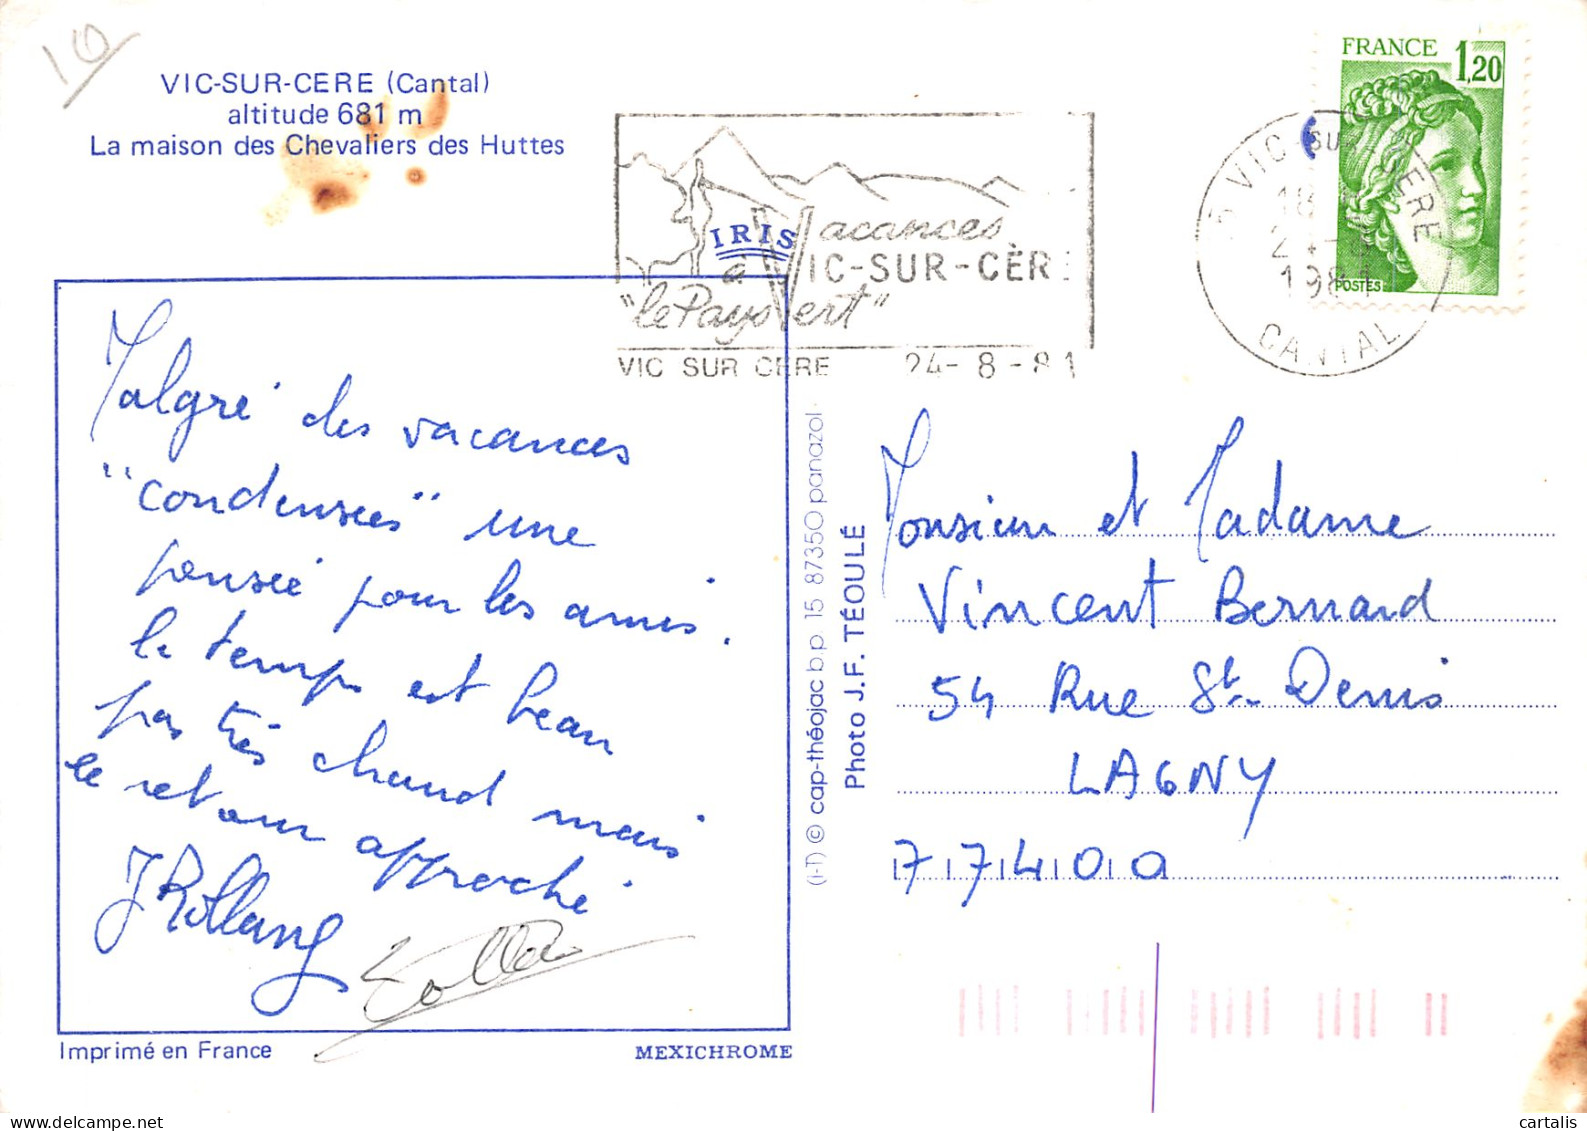 10
VIC-SUR-CERE (Cantal)
altitude 681 m
La maison des Chevaliers des Huttes
FRANCE 1,20
POSTES
IRIS
Vacances
à VIC-SUR-CÈRE
"le Pays Vert"
VIC SUR CERE 24-8-81
15 VIC-SUR-CERE
18
24-8
1981
CANTAL
Malgré des vacances
"condensées" une
pensée pour les amis.
le temps est beau
pas très chaud mais
le retour approche
Monsieur et Madame
Vincent Bernard
54 Rue St-Denis
LAGNY
77400
(i-T) © cap-théojac b.p 15 87350 panazol
Photo J.F. TÉOULÉ
Imprimé en France
MEXICHROME
cartalis